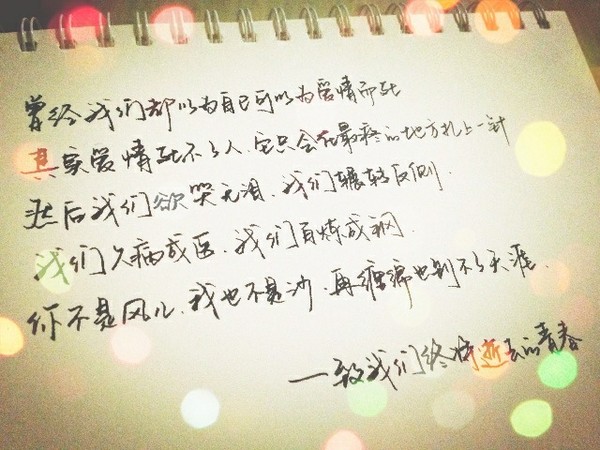 曾经我们都以为自己可以为爱情而死
其实爱情死不了人,它只会在最疼的地方扎上一针
然后我们欲哭无泪,我们辗转反侧.
我们久病成医,我们百炼成钢.
你不是风儿,我也不是沙,再缠绵也到不了天涯.
—致我们终将逝去的青春